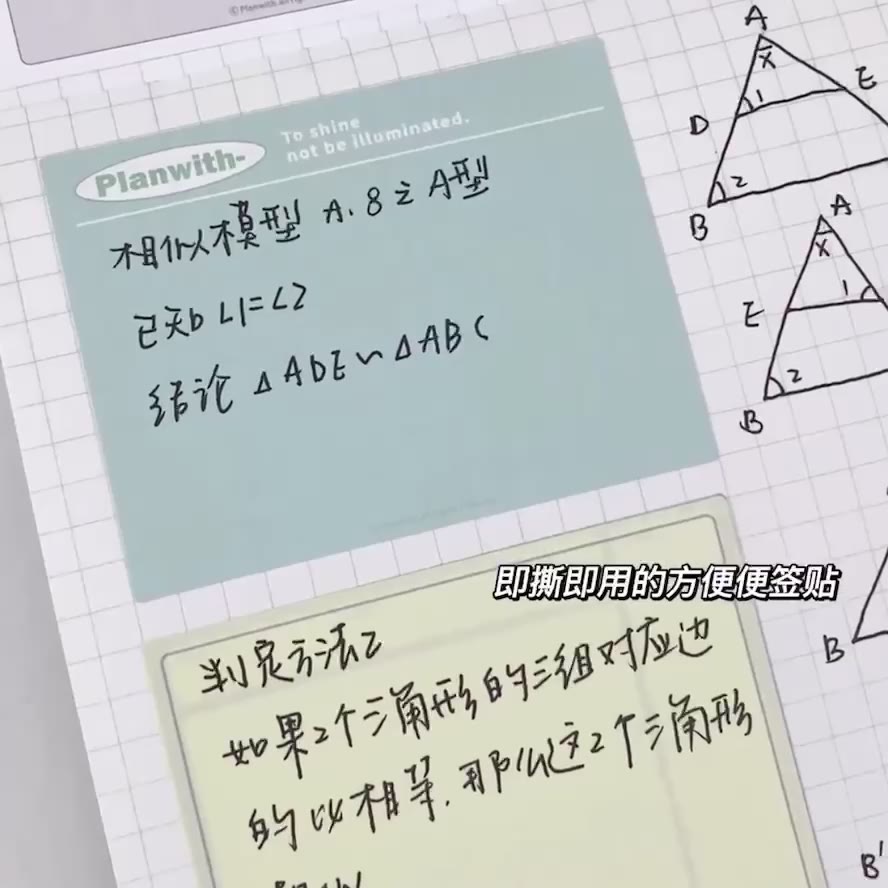 Planwith-
To shine
not be illuminated.
相似模型 A、8 之 A型
已知 ∠1=∠2
结论 △ADE∽△ABC
即撕即用的方便便签贴
判定方法2
如果2个三角形的三组对应边
的比相等,那么这2个三角形
A
X
E
D
1
2
B
A
X
E
1
2
B
B
B'